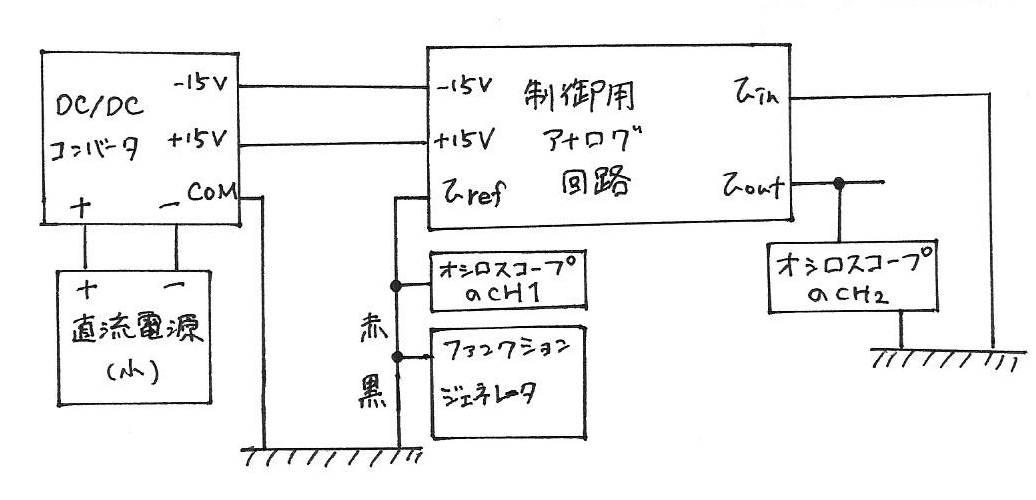 DC/DC
コンバータ
-15V
+15V
COM
+
-
+
-
直流電源
(小)
-15V
+15V
τref
制御用
アナログ
回路
τin
τout
オシロスコープ
のCH1
赤
黒
ファンクション
ジェネレータ
オシロスコープ
のCH2